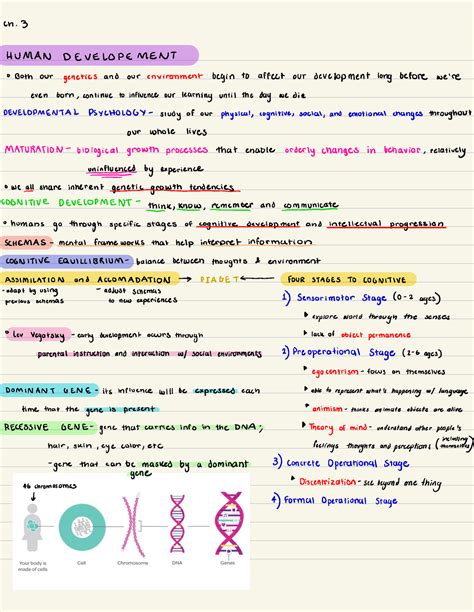 Ch. 3
HUMAN DEVELOPEMENT
• Both our genetics and our environment begin to affect our development long before we're
even born, continue to influence our learning until the day we die
DEVELOPMENTAL PSYCHOLOGY - study of our physical, cognitive, social, and emotional changes throughout
our whole lives
MATURATION - biological growth processes that enable orderly changes in behavior, relatively
uninfluenced by experience
• we all share inherent genetic growth tendencies
COGNITIVE DEVELOPMENT - think, know, remember and communicate
• humans go through specific stages of cognitive development and intellectual progression
SCHEMAS - mental frameworks that help interpret information
COGNITIVE EQUILIBRIUM - balance between thoughts & environment
ASSIMILATION and ACCOMADATION → PIAGET ← FOUR STAGES TO COGNITIVE
- adapt by using
previous schemas
- adjust schemas
to new experiences
• Lev Vygotsky - early development occurs through
parental instruction and interaction w/ social environments
DOMINANT GENE - its influence will be expressed each
time that the gene is present
RECESSIVE GENE - gene that carries info in the DNA;
hair, skin, eye color, etc
- gene that can be masked by a dominant
gene
1) Sensorimotor Stage (0-2 ages)
• explore world through the senses
• lack of object permanence
2) Preoperational Stage (2-6 ages)
• egocentrism - focus on themselves
• able to represent what's happening w/ language
• animism - thinks animate objects are alive
• Theory of mind - understand other people's
feelings thoughts and perceptions (including themselves)
3) Concrete Operational Stage
• Discentrization - see beyond one thing
4) Formal Operational Stage
46 chromosomes
Your body is
made of cells
Cell
Chromosome
DNA
Genes